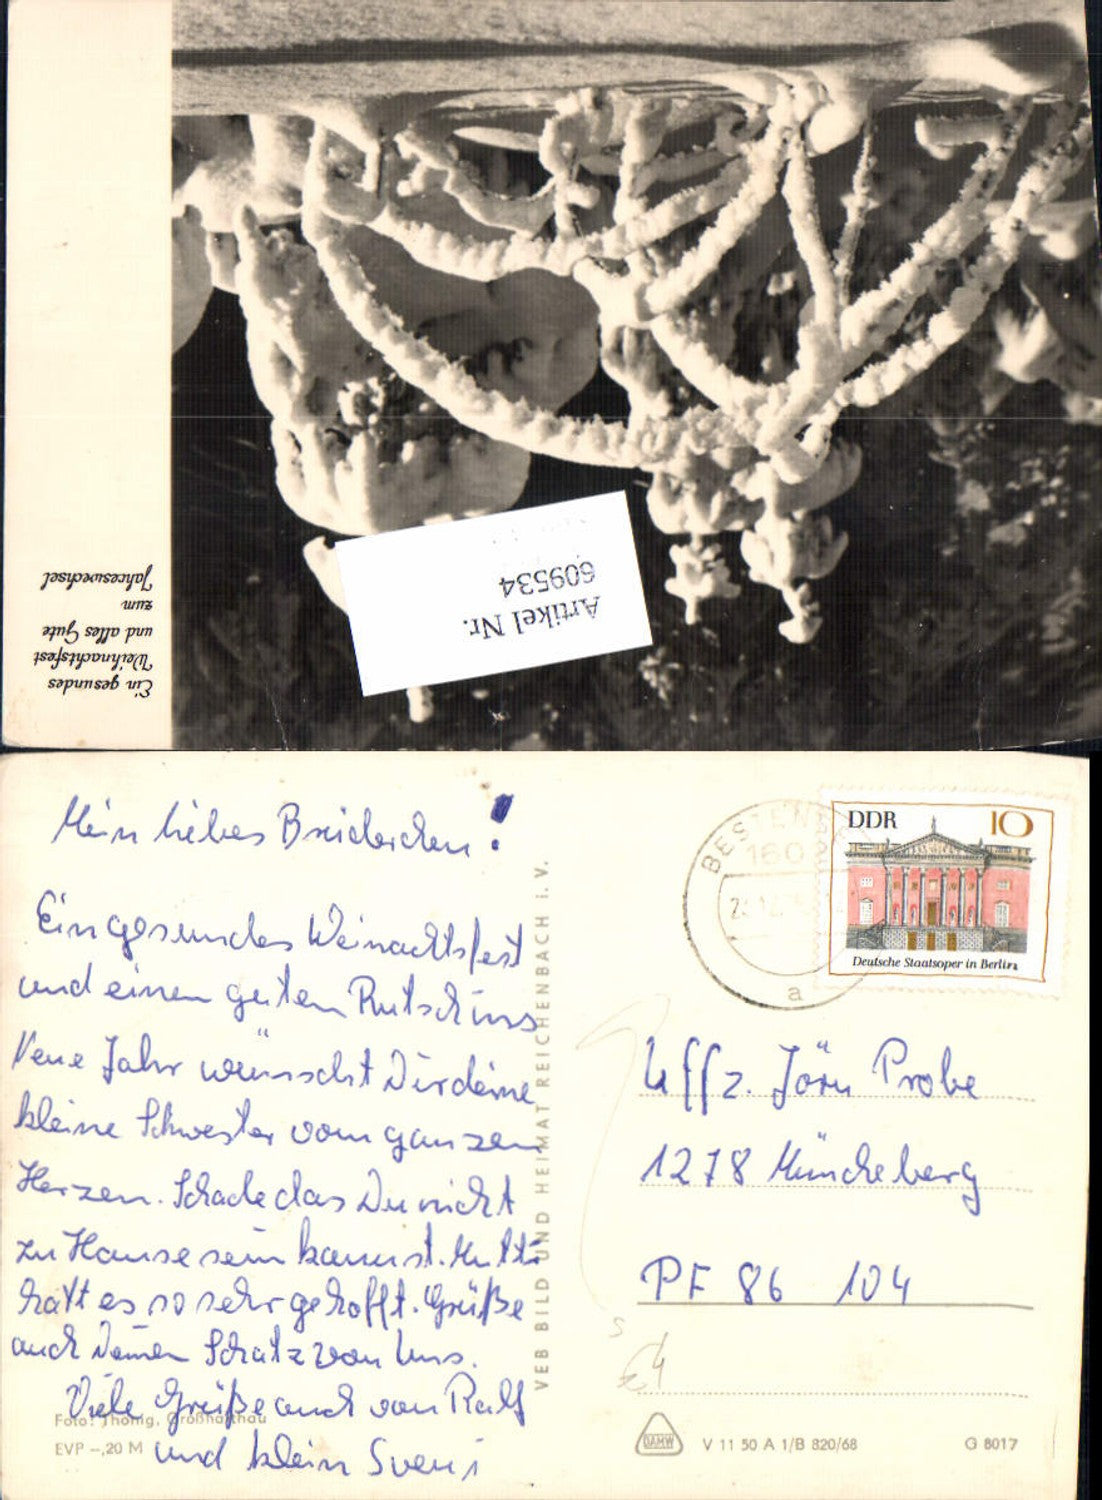 Ein gesundes
Weihnachtsfest
und alles Gute
zum
Jahreswechsel
Artikel Nr.
609534
Mein liebes Brüderchen!
Ein gesundes Weinachtsfest
und einen guten Rutsch ins
Neue Jahr wünscht Dir deine
kleine Schwester vom ganzen
Herzen. Schade das Du nicht
zu Hause sein kannst. Mutti
hatt es so sehr gehofft. Grüße
auch Deinen Schatz von Uns.
Viele Grüße auch von Ralf
und klein Sveni
Foto: Thonig, Großharthau
EVP –,20 M
VEB BILD UND HEIMAT REICHENBACH i. V.
BESTENSEE
160
a
DDR 10
Deutsche Staatsoper in Berlin
Uffz. Jörn Probe
1278 Müncheberg
PF 86 104
DAMW
V 11 50 A 1/B 820/68
G 8017